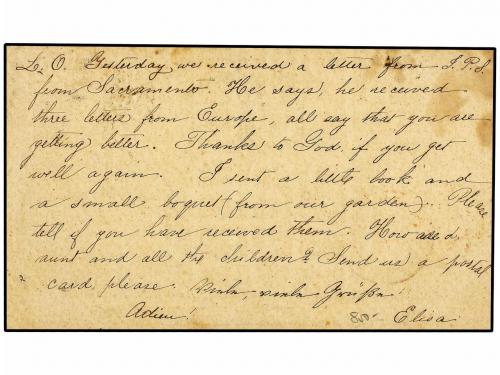 L. O. Yesterday we received a letter from J. P. S.
from Sacramento. He says, he received
three letters from Europe, all say that you are
getting better. Thanks to God if you get
well again. I sent a little book and
a small boquet (from our garden). Please
tell if you have received them. How are d.
aunt and all the children? Send us a postal
card please. Viele, viele Grüße.
Adieu! 850- Elisa